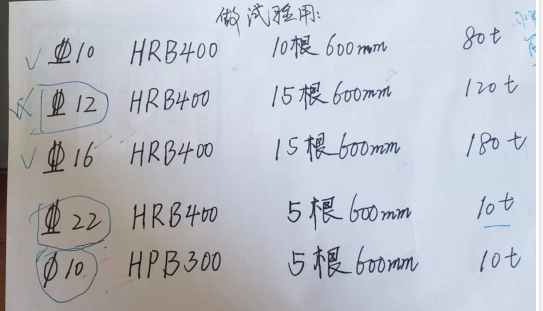 做试验用:
⏀10 HRB400 10根600mm 80t
⏀12 HRB400 15根600mm 120t
⏀16 HRB400 15根600mm 180t
⏀22 HRB400 5根600mm 10t
Φ10 HPB300 5根600mm 10t